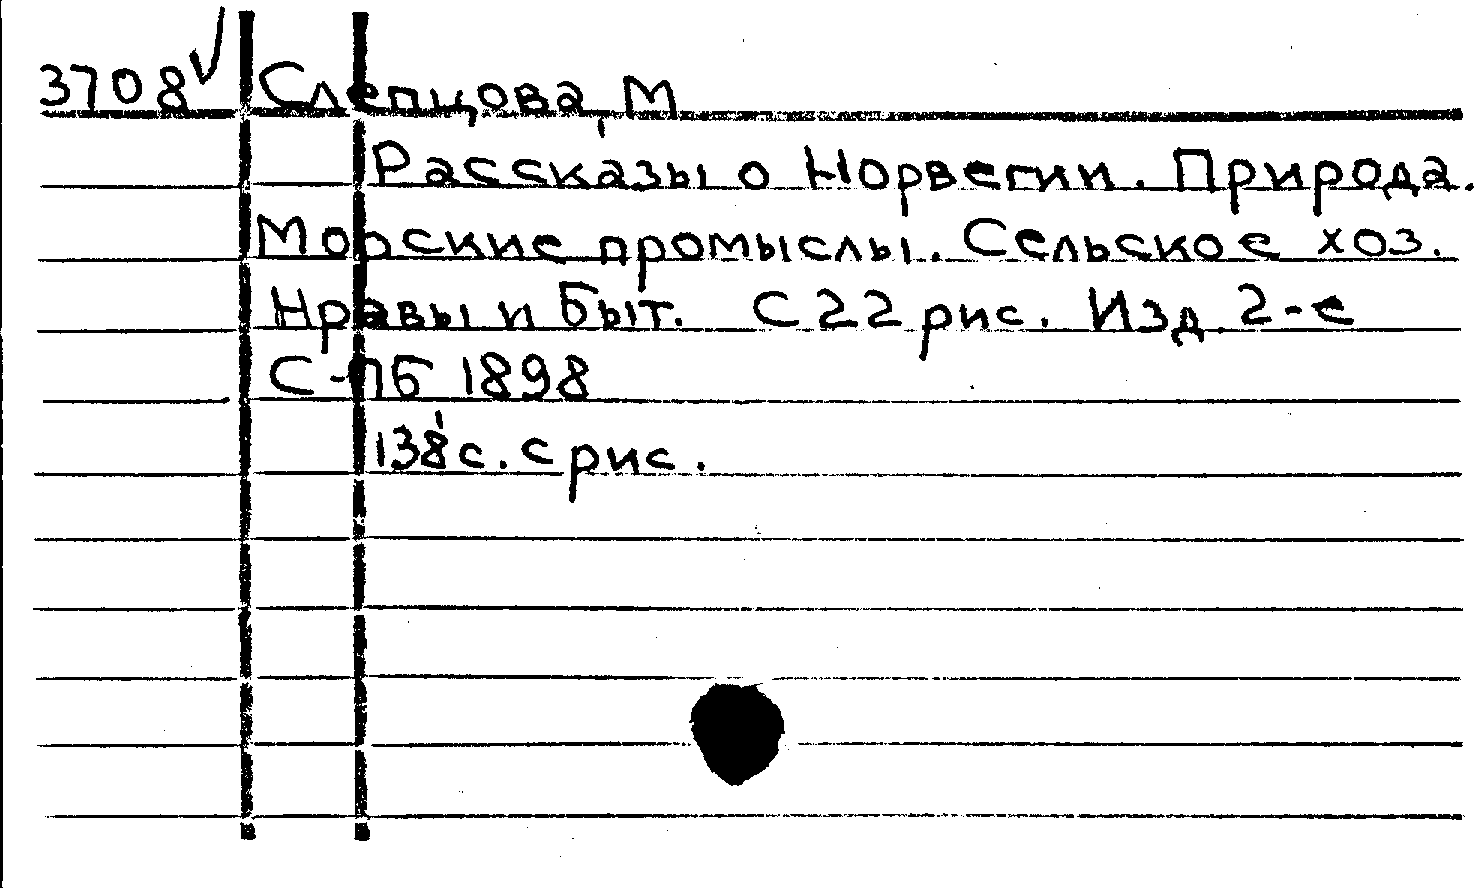 3708 Слепцова, М
Рассказы о Норвегии. Природа.
Морские промыслы. Сельское хоз.
Нравы и быт. С 22 рис. Изд. 2-е
С-ПБ 1898
138 с. с рис.